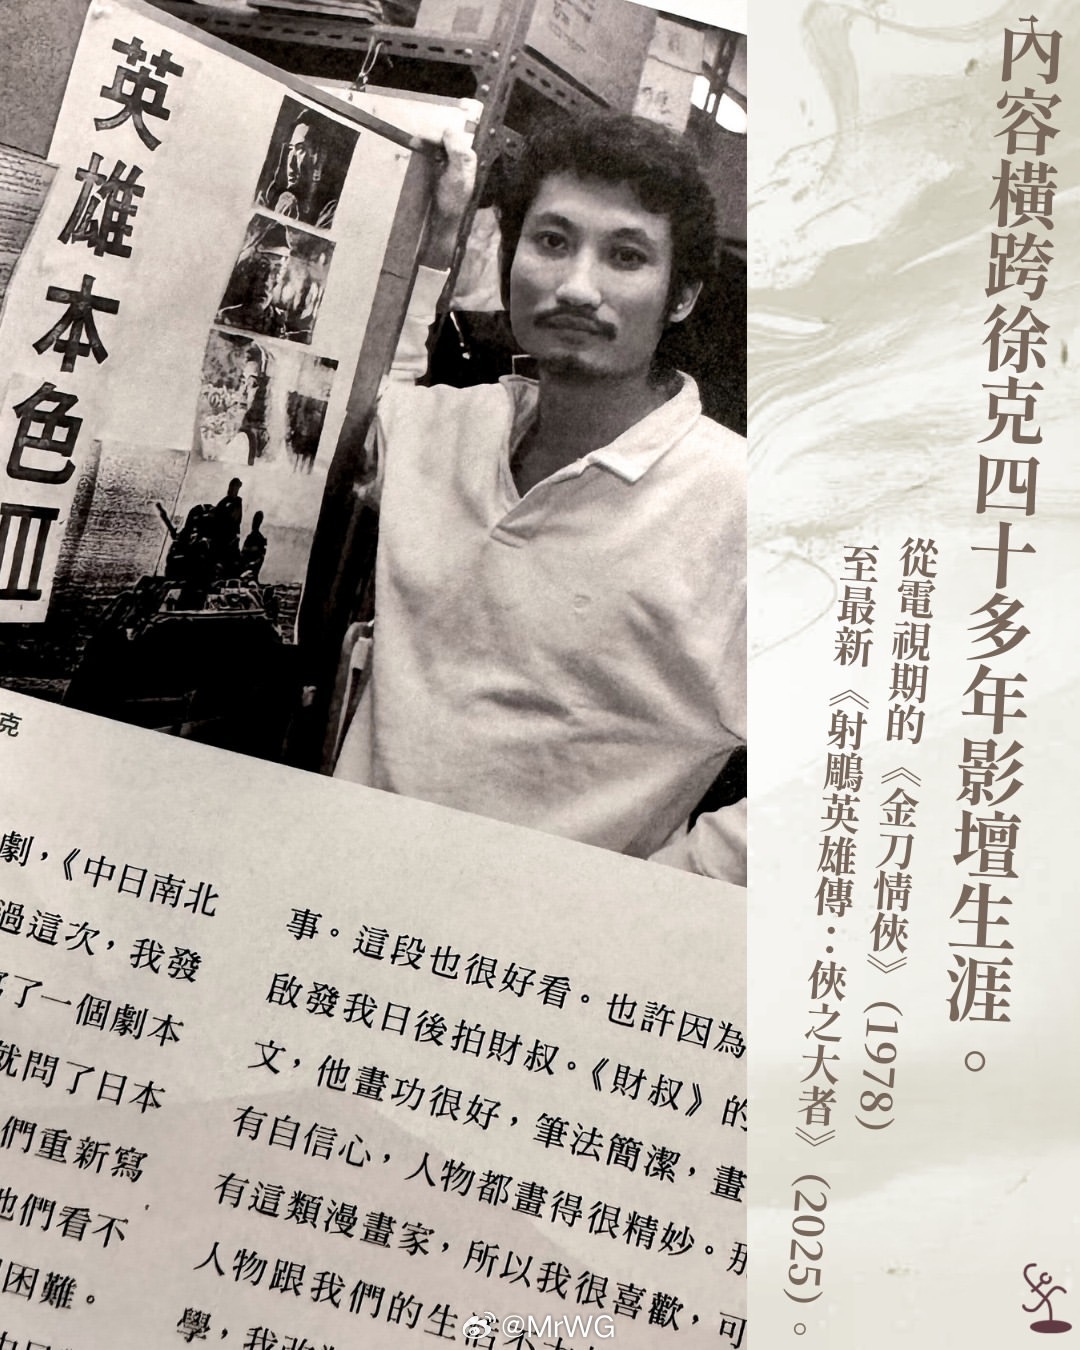 內容橫跨徐克四十多年影壇生涯。
從電視期的《金刀情俠》(1978)
至最新《射鵰英雄傳：俠之大者》(2025)。
英雄本色III
克
劇，《中日南北
過這次，我發
了一個劇本
就問了日本
們重新寫
他們看不
困難。
事。這段也很好看。也許因為
啟發我日後拍財叔。《財叔》的
文，他畫功很好，筆法簡潔，畫
有自信心，人物都畫得很精妙。那
有這類漫畫家，所以我很喜歡，可
人物跟我們的生活不
學，我
@MrWG